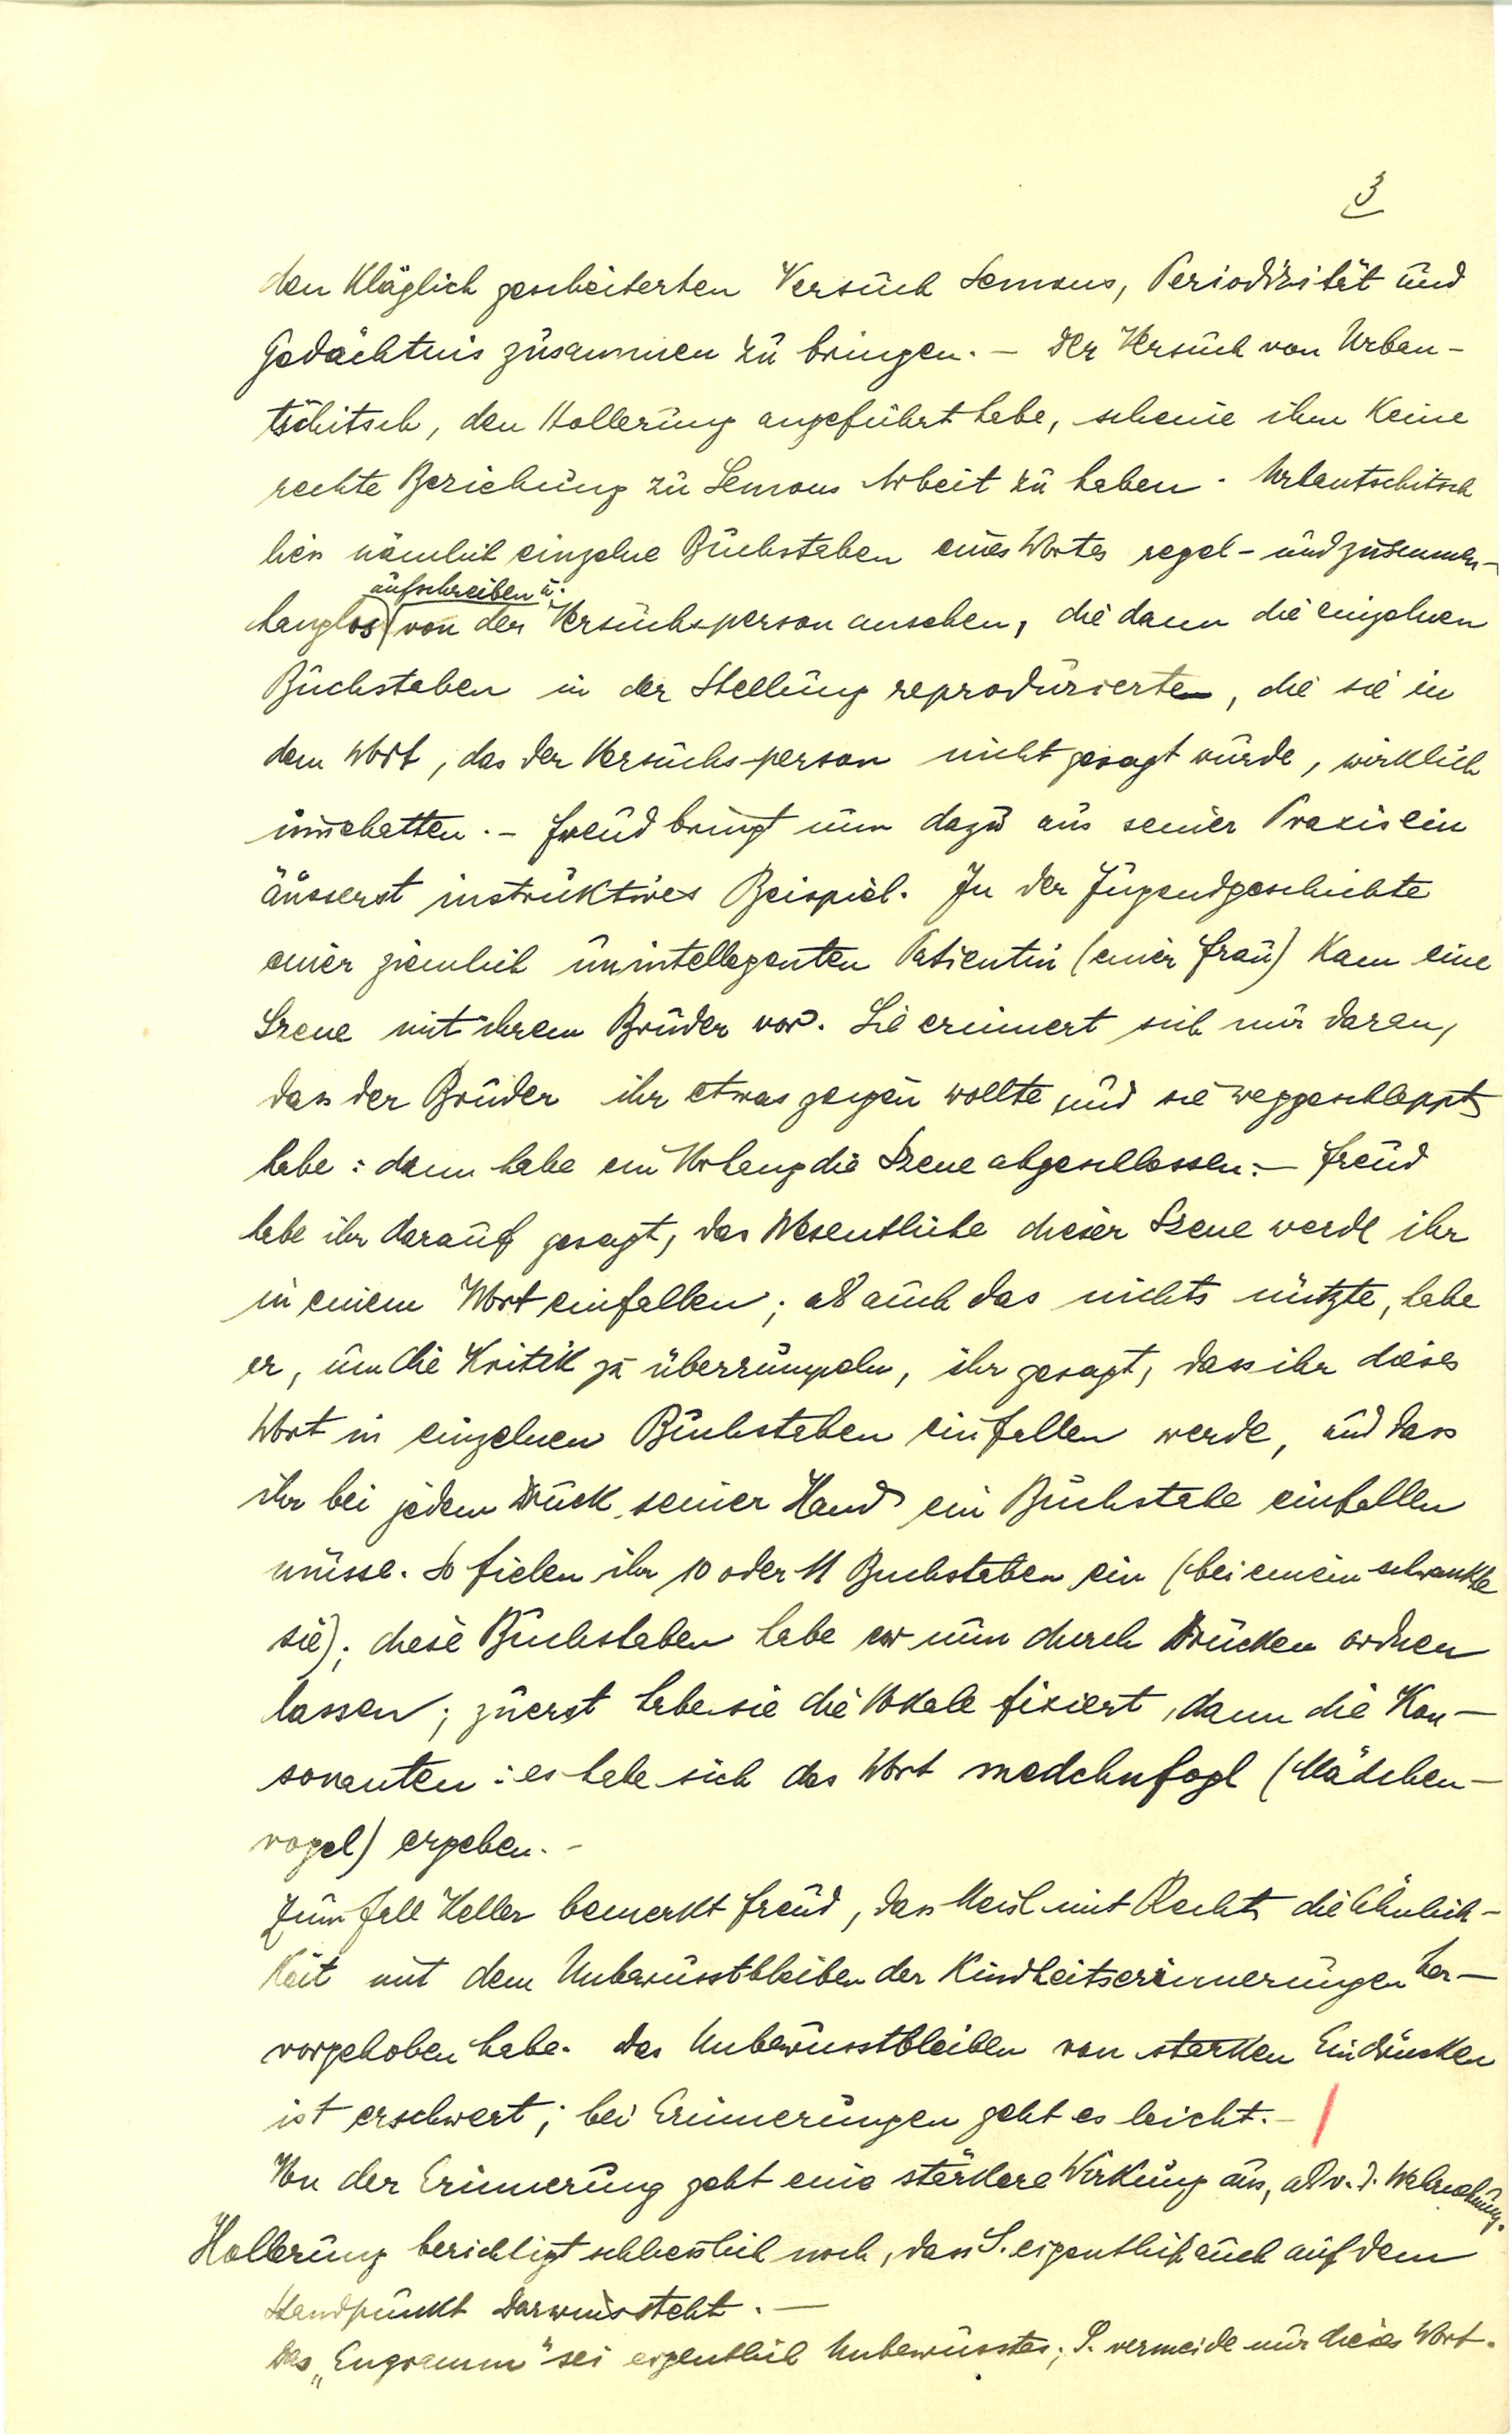 3
den kläglich gescheiterten Versuch Semons, Periodizität und
Gedächtnis zusammen zu bringen. – Der Versuch von Urban-
tschitsch, den Hollerung angeführt habe, scheine ihm keine
rechte Beziehung zu Semons Arbeit zu haben. Urbantschitsch
liess nämlich einzelne Buchstaben eines Wortes regel- und zusammen-
aufschreiben u.
hanglos von der Versuchsperson ansehen, die dann die einzelnen
Buchstaben in der Stellung reproduzierte, die sie in
dem Wort, das der Versuchsperson nicht gesagt wurde, wirklich
innehatten. – Freud bringt nun dazu aus seiner Praxis ein
äusserst instruktives Beispiel. In der Jugendgeschichte
einer ziemlich unintellegenten Patientin (einer Frau) kam eine
Szene mit ihrem Bruder vor. Sie erinnert sich nur daran,
dass der Bruder ihr etwas zeigen wollte und sie weggeschleppt
habe: dann habe ein Vorhang die Szene abgeschlossen. – Freud
habe ihr darauf gesagt, das Wesentliche dieser Szene werde ihr
in einem Wort einfallen; als auch das nichts nützte, habe
er, um die Kritik zu überrumpeln, ihr gesagt, dass ihr dieses
Wort in einzelnen Buchstaben einfallen werde, und dass
ihr bei jedem Druck seiner Hand ein Buchstabe einfallen
müsse. So fielen ihr 10 oder 11 Buchstaben ein (bei einem schwankte
sie); diese Buchstaben habe er nun durch Drücken ordnen
lassen; zuerst habe sie die Vokale fixiert, dann die Kon-
sonanten: es habe sich das Wort medchnfogl (Mädchen-
vogel) ergeben. –
Zum Fall Keller bemerkt Freud, dass Meisl mit Recht die Ähnlich-
keit mit dem Unbewusstbleiben der Kindheitserinnerungen her-
vorgehoben habe. Das Unbewusstbleiben von starken Eindrücken
ist erschwert; bei Erinnerungen geht es leicht. –
Von der Erinnerung geht eine stärkere Wirkung aus, als v. d. Wahrnehmung.
Hollerung berichtigt schliesslich noch, dass S. eigentlich auch auf dem
Standpunkt Darwins steht. –
Das „Engramm" sei eigentlich Unbewusstes; S. vermeide nur dieses Wort.